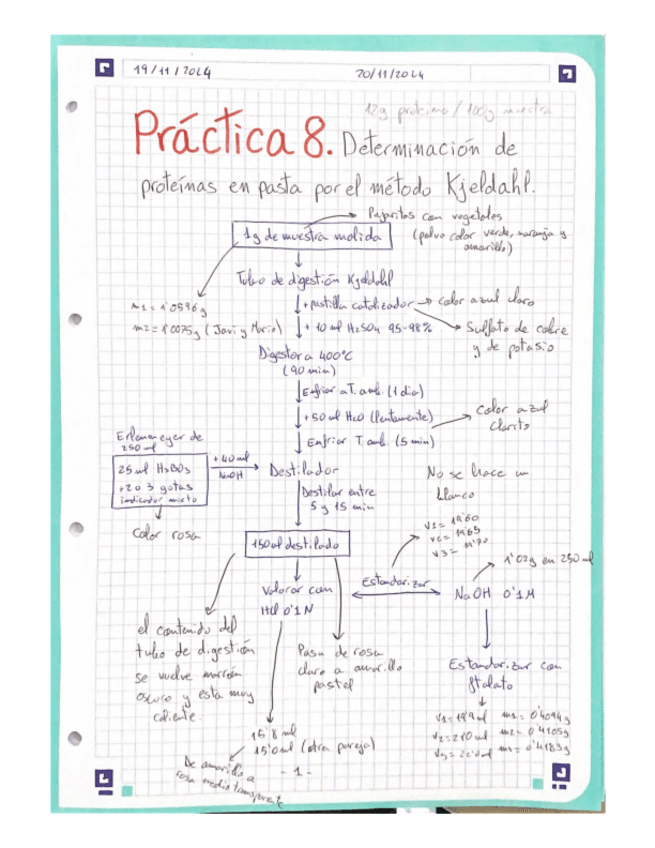 19/11/2024
20/11/2024
12g proteína / 100g muestra
Práctica 8. Determinación de
proteínas en pasta por el método Kjeldahl.
Pajaritos con vegetales
(polvo color verde, naranja y
amarillo)
1g de muestra molida
Tubo de digestión Kjeldahl
m1 = 1'0596g
m2 = 1'0075g (Javi y Mario)
+ pastilla catalizador → color azul claro
+ 10 ml H2SO4 95-98%
Sulfato de cobre
y de potasio
Digestor a 400°C
(90 min)
Enfriar a T. amb. (1 día)
+ 50 ml H2O (lentamente)
Color azul
clarito
Enfriar T. amb. (5 min)
Erlenmeyer de
250 ml
25 ml H3BO3
+ 2 o 3 gotas
indicador mixto
+ 40 ml
NaOH
Destilador
Color rosa
Destilar entre
5 y 15 min
No se hace un
blanco
150 ml destilado
V1 = 19'60
V2 = 19'65
V3 = 19'70
1'02g en 250 ml
Valorar con
HCl 0'1 N
Estandarizar
NaOH 0'1M
el contenido del
tubo de digestión
se vuelve marrón
oscuro y está muy
caliente.
Pasa de rosa
claro a amarillo
pastel
Estandarizar con
ftalato
V1 = 19'9 ml m1 = 0'4094g
V2 = 21'0 ml m2 = 0'4105g
m3 = 0'4183g
15'8 ml
15'0 ml (otra pareja)
De amarillo a
rosa medio transparente
- 1 -